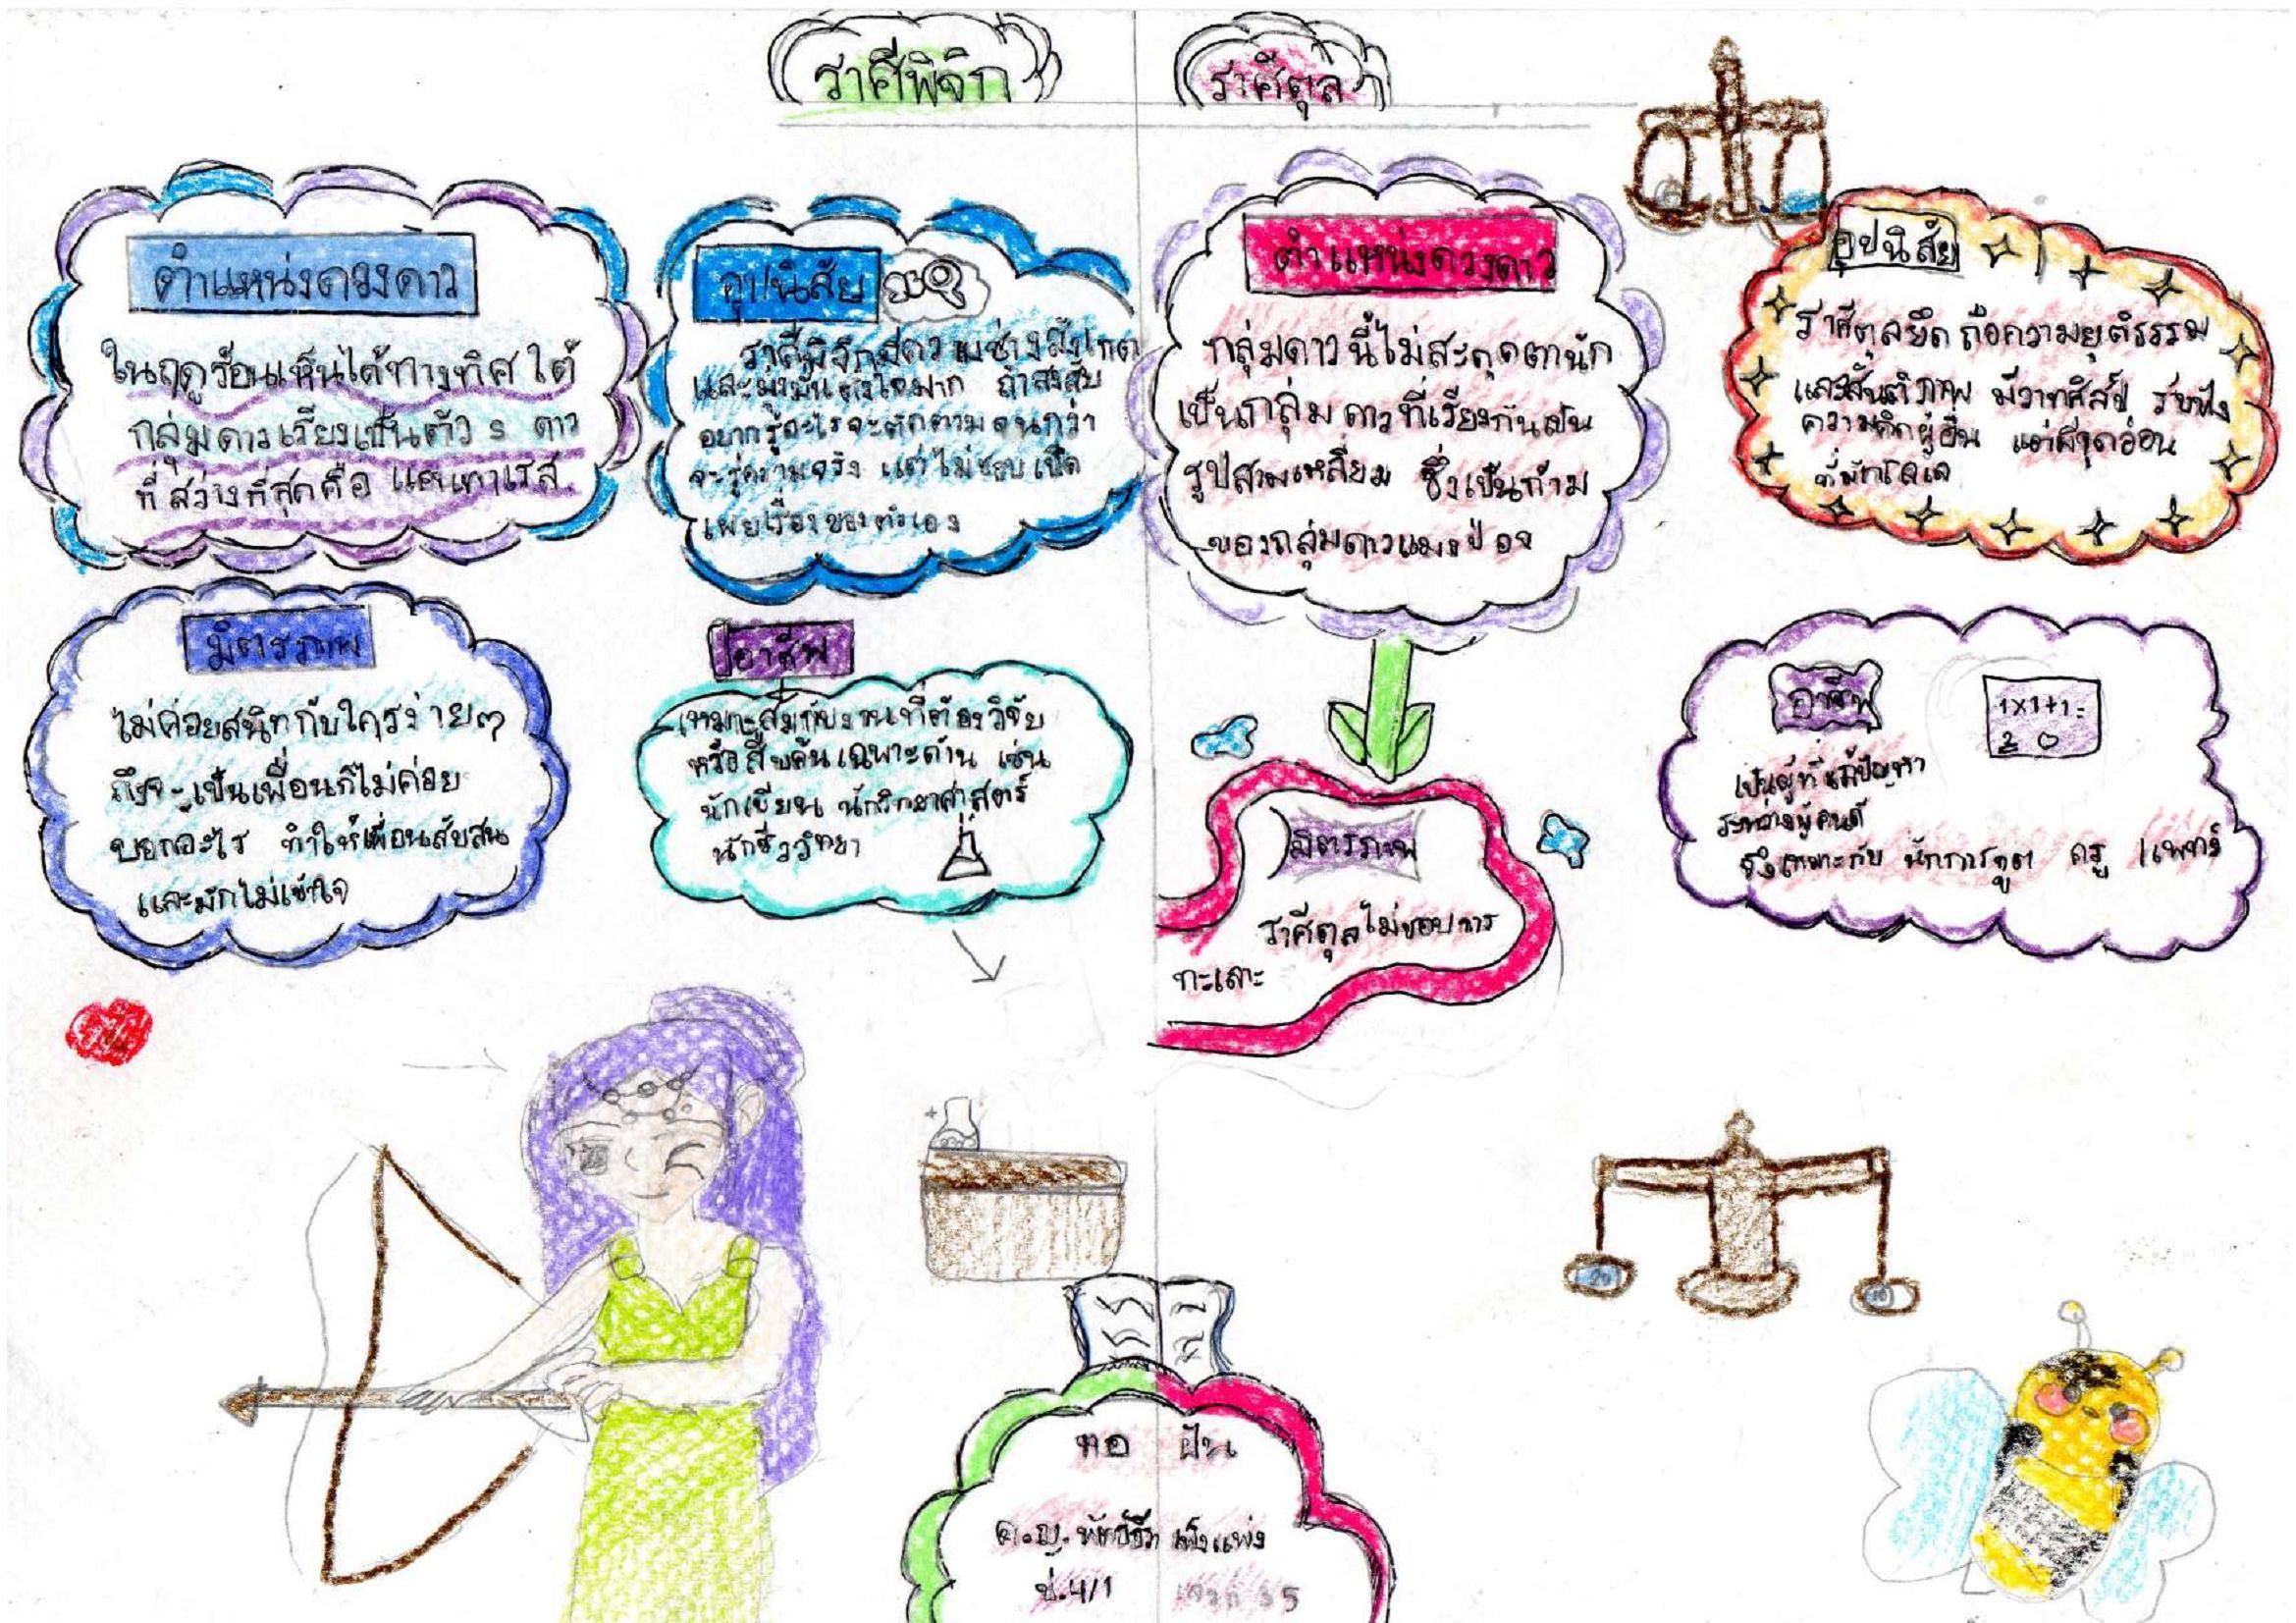 ราศีพิจิก
ราศีตุล
ตำแหน่งดวงดาว
ในฤดูร้อนเห็นได้ทางทิศใต้
กลุ่มดาวเรียงเป็นตัว s ดาว
ที่สว่างที่สุดคือ แอนทาเรส
อุปนิสัย
ราศีพิจิกมีความช่างสังเกต
และมุ่งมั่นตั้งใจมาก ถ้าสงสัย
อยากรู้อะไรจะติดตามจนกว่า
จะรู่ความจริง แต่ไม่ชอบเปิด
เผยเรื่องของตัวเอง
มิตรภาพ
ไม่ค่อยสนิทกับใครง่ายๆ
ถึงจะเป็นเพื่อนก็ไม่ค่อย
บอกอะไร ทำให้เพื่อนสับสน
และมักไม่เข้าใจ
อาชีพ
เหมาะสมกับงานที่ต้องวิจัย
หรือสืบค้นเฉพาะด้าน เช่น
นักเขียน นักวิทยาศาสตร์
นักชีววิทยา
ตำแหน่งดวงดาว
กลุ่มดาวนี้ไม่สะดุดตานัก
เป็นกลุ่มดาวที่เรียงกันเป็น
รูปสามเหลี่ยม ซึ่งเป็นก้าม
ของกลุ่มดาวแมงป่อง
อุปนิสัย
ราศีตุลยึดถือความยุติธรรม
และสันติภาพ มีวาทศิลป์ รับฟัง
ความคิดผู้อื่น แต่มีจุดอ่อน
ที่มักโลเล
มิตรภาพ
ราศีตุลไม่ชอบการ
ทะเลาะ
อาชีพ
1x1+1=
2 0
เป็นผู้ที่แก้ปัญหา
ระหว่างผู้คนดี
จึงเหมาะกับ นักการทูต ครู แพทย์
20
10
ทอ ฝัน
ด.ญ.
ป.4/1 เลขที่ 35